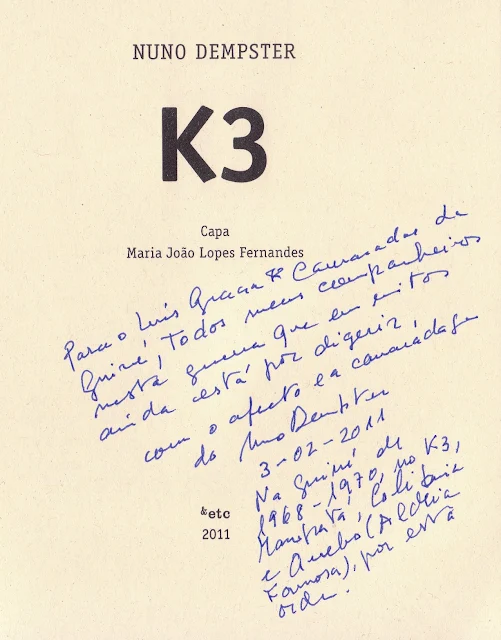 NUNO DEMPSTER
K3
Capa
Maria João Lopes Fernandes
Para o Luís Graça & Camaradas da
Guiné, todos meus companheiros
nesta guerra que em muitos
ainda está por digerir,
com o afecto e a camaradagem
do Nuno Dempster
3-02-2011
Na Guiné de
1968-1970, no K3,
Mansabá, Saliquinhedim
&etc
2011
e Quebo (Aldeia
Formosa), por esta
ordem.